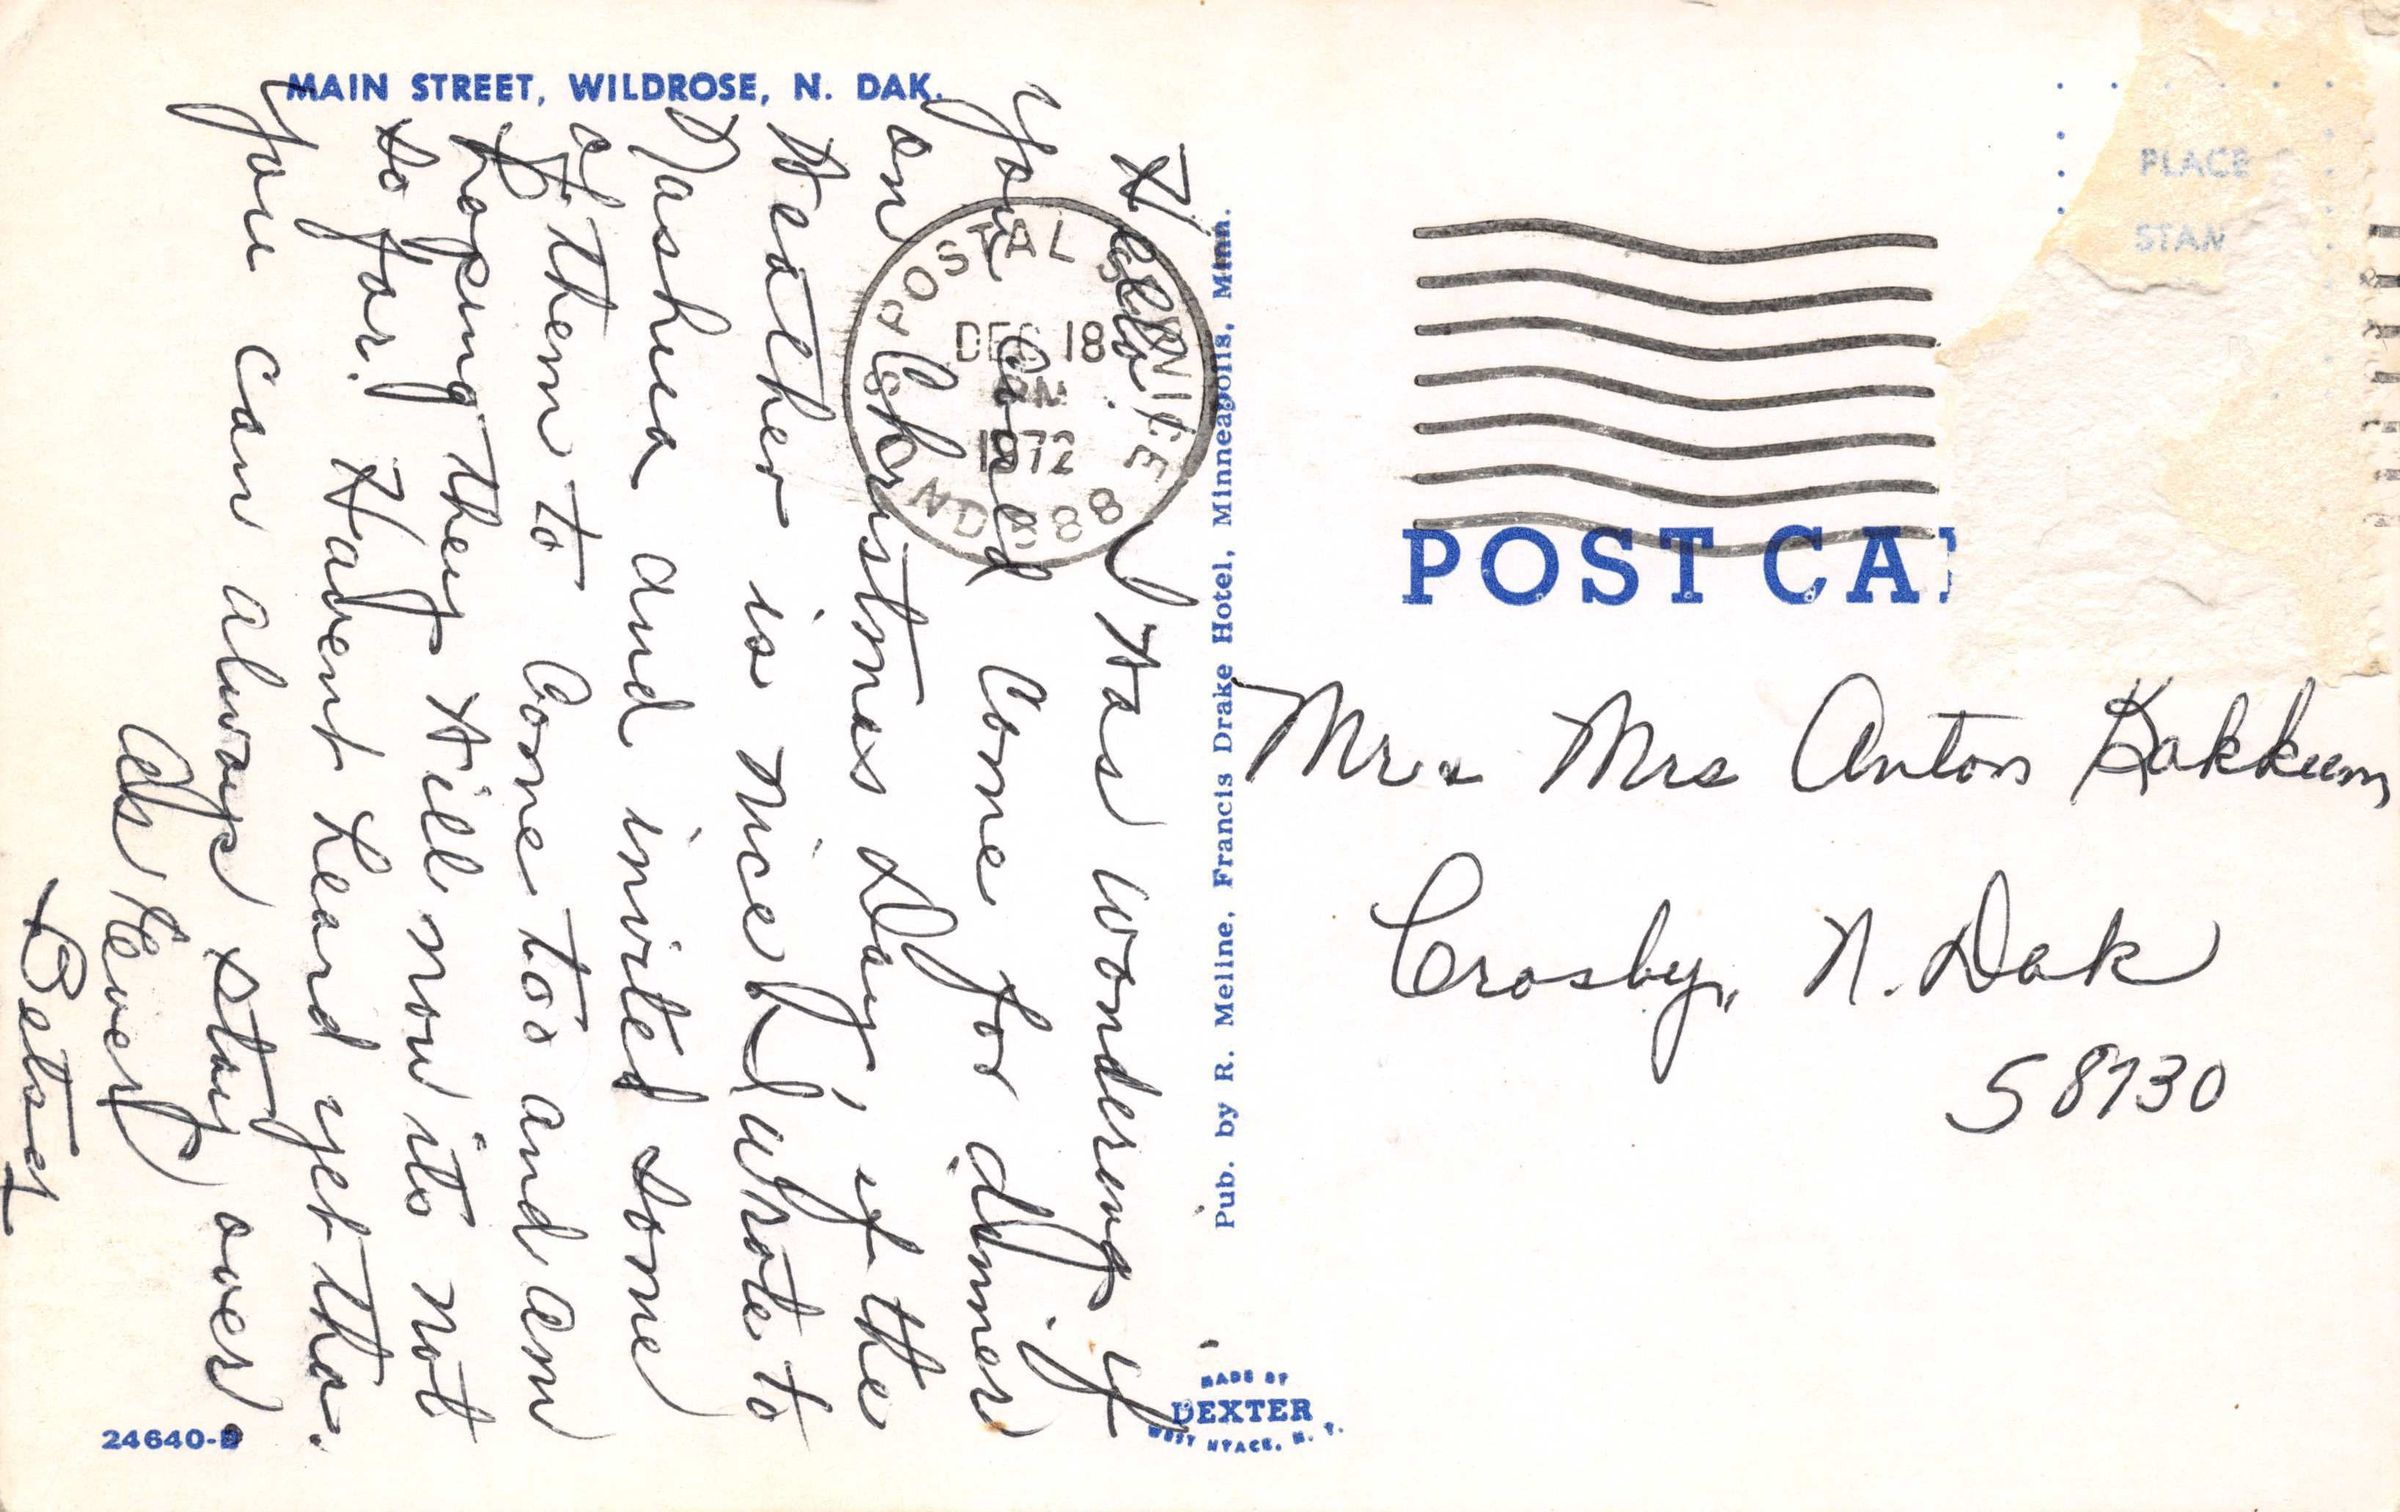 MAIN STREET, WILDROSE, N. DAK.
Hello. Was wondering if
you could come for dinner
on Christmas Day, if the
weather is nice. I wrote to
Nashua and invited some
of them to come too and am
hoping they will now its not
so far. Havent heard yet tho.
You can always stay over.
As Ever
Betsy
24640-B
Pub. by R. Meline, Francis Drake Hotel, Minneapolis, Minn.
MADE BY
DEXTER
WEST NYACK, N. Y.
POSTAL SERVICE
DEC 18
PM
1972
ND 588
PLACE
STAM
POST CA
Mr & Mrs Anton Kakkum
Crosby, N. Dak
58730